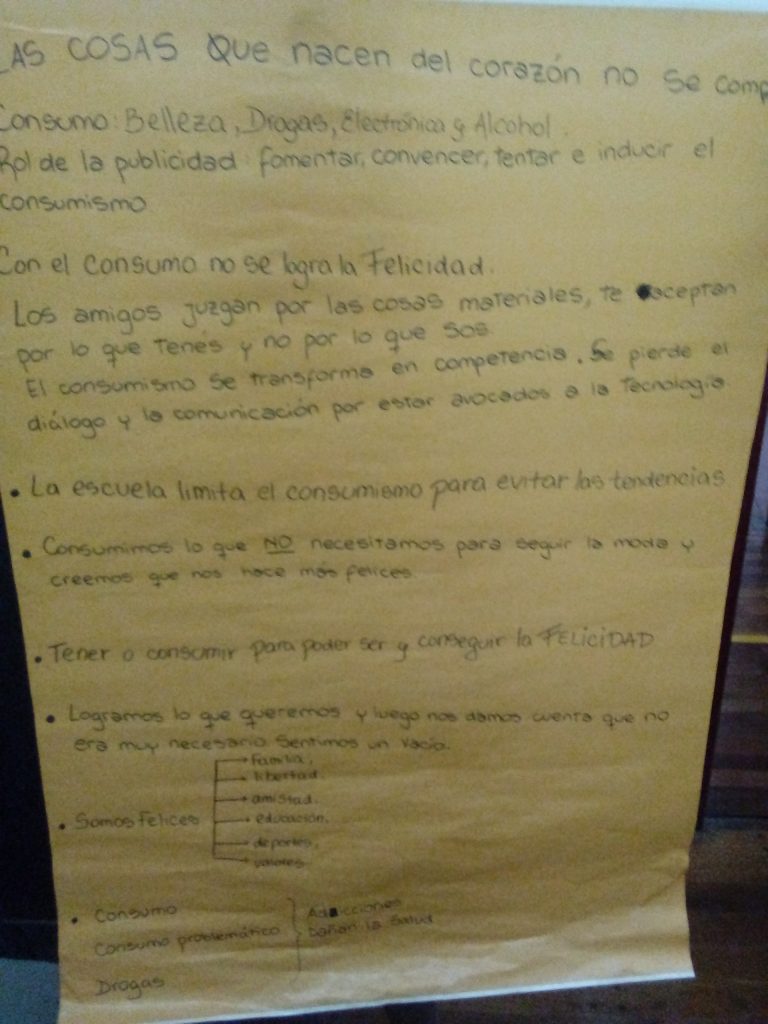 LAS COSAS QUE nacen del corazón no se comp
Consumo: Belleza, Drogas, Electrónica y Alcohol.
Rol de la publicidad: fomentar, convencer, tentar e inducir el
consumismo
Con el consumo no se logra la Felicidad.
Los amigos juzgan por las cosas materiales, te aceptan
por lo que tenés y no por lo que sos.
El consumismo se transforma en competencia. Se pierde el
diálogo y la comunicación por estar avocados a la tecnología.
• La escuela limita el consumismo para evitar las tendencias
• Consumimos lo que NO necesitamos para seguir la moda y
creemos que nos hace más felices.
• Tener o consumir para poder ser y conseguir la FELICIDAD
• Logramos lo que queremos y luego nos damos cuenta que no
era muy necesario. Sentimos un vacío.
• Somos Felices
Familia.
libertad.
amistad.
educación.
deportes.
valores.
• Consumo
Consumo problemático
Drogas
Adicciones
Dañan la salud